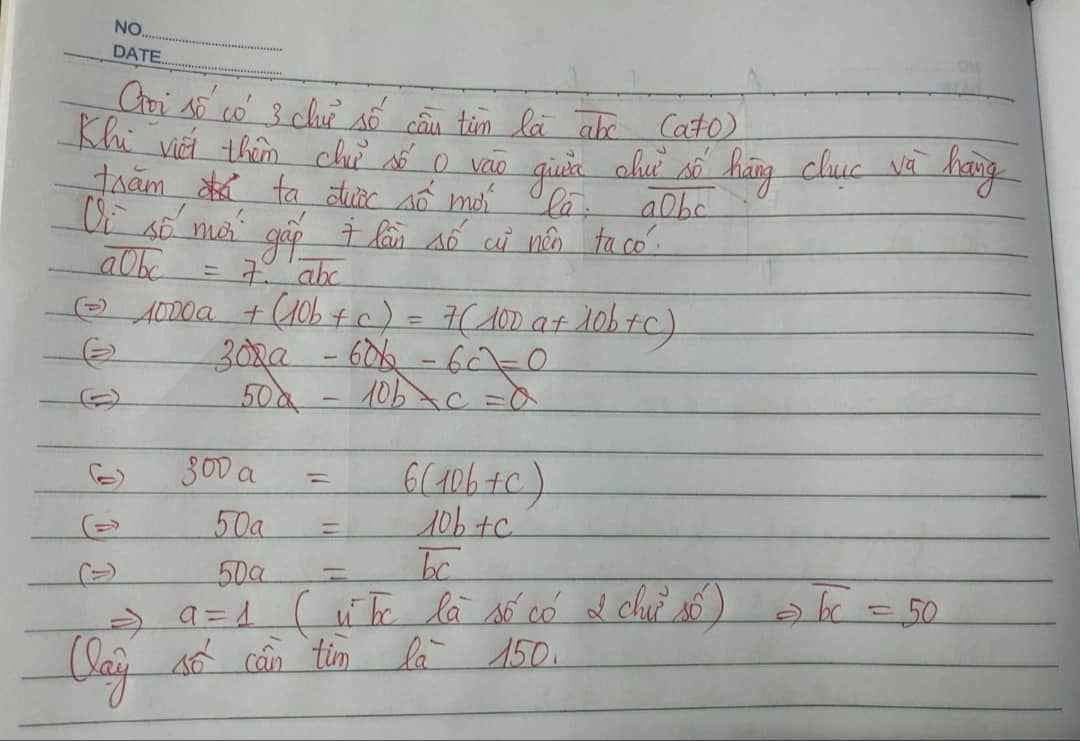 NO
DATE
Gọi số có 3 chữ số cần tìm là abc (a≠0)
Khi viết thêm chữ số 0 vào giữa chữ số hàng chục và hàng
trăm ta được số mới là: a0bc
Vì số mới gấp 7 lần số cũ nên ta có:
a0bc = 7. abc
(=) 1000a + (10b + c) = 7(100a + 10b + c)
(=) 300a - 60b - 6c = 0
(=) 50a - 10b - c = 0
(=) 300a = 6(10b + c)
(=) 50a = 10b + c
(=) 50a = bc
=> a = 1 (vì bc là số có 2 chữ số) => bc = 50
Vậy số cần tìm là 150.